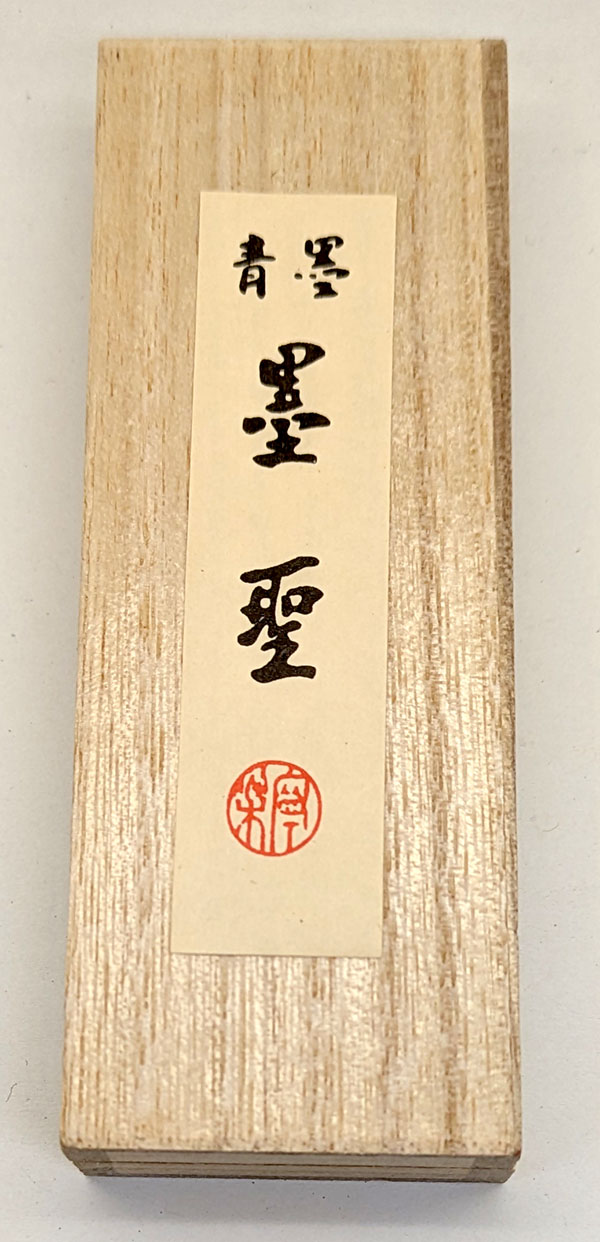 青墨
墨聖